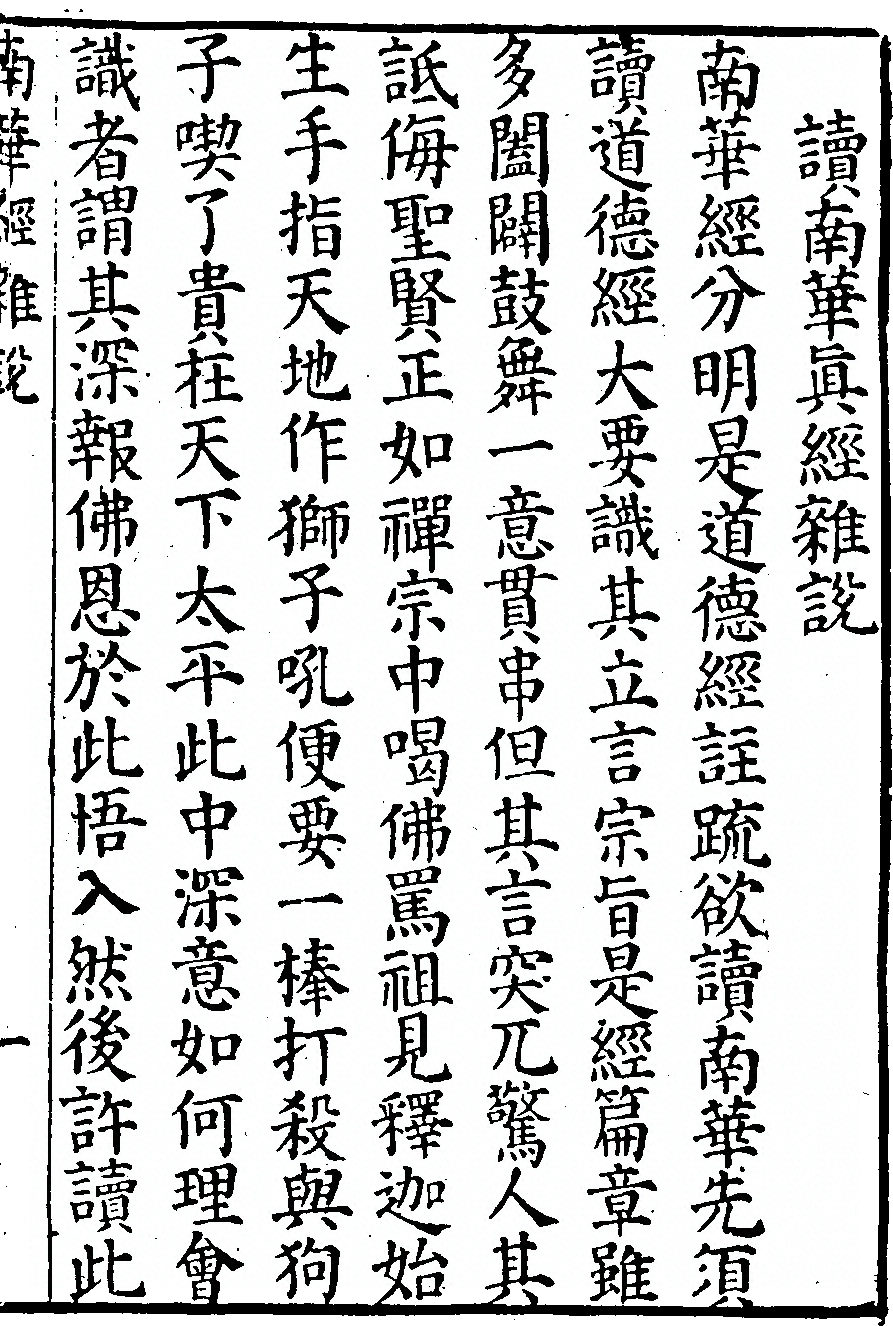 讀南華眞經雜說
南華經分明是道德經註疏欲讀南華先須
讀道德經大要識其立言宗旨是經篇章雖
多闔闢鼓舞一意貫串但其言突兀驚人其
詆侮聖賢正如禪宗中喝佛罵祖見釋迦始
生手指天地作獅子吼便要一棒打殺與狗
子喫了貴在天下太平此中深意如何理會
識者謂其深報佛恩於此悟入然後許讀此
南華經雜說
一